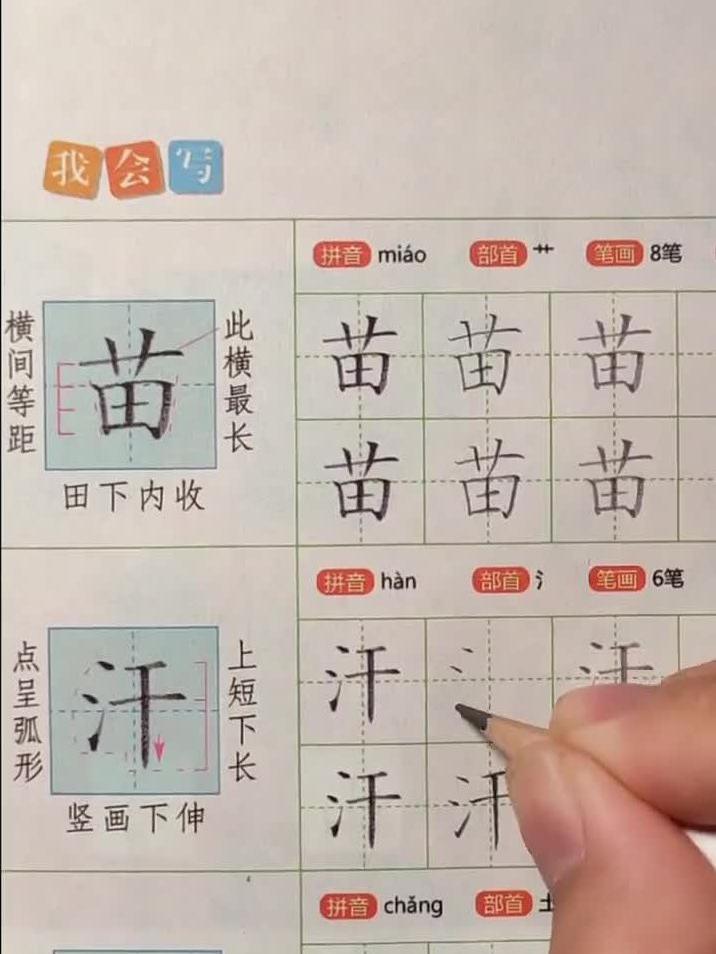 我会写
拼音 miáo 部首 艹 笔画 8笔
横间等距
苗
此横最长
田下内收
苗 苗 苗
苗 苗 苗
拼音 hàn 部首 氵 笔画 6笔
点呈弧形
汗
上短下长
竖画下伸
汗 氵 汗
汗 汗
拼音 chǎng 部首 土